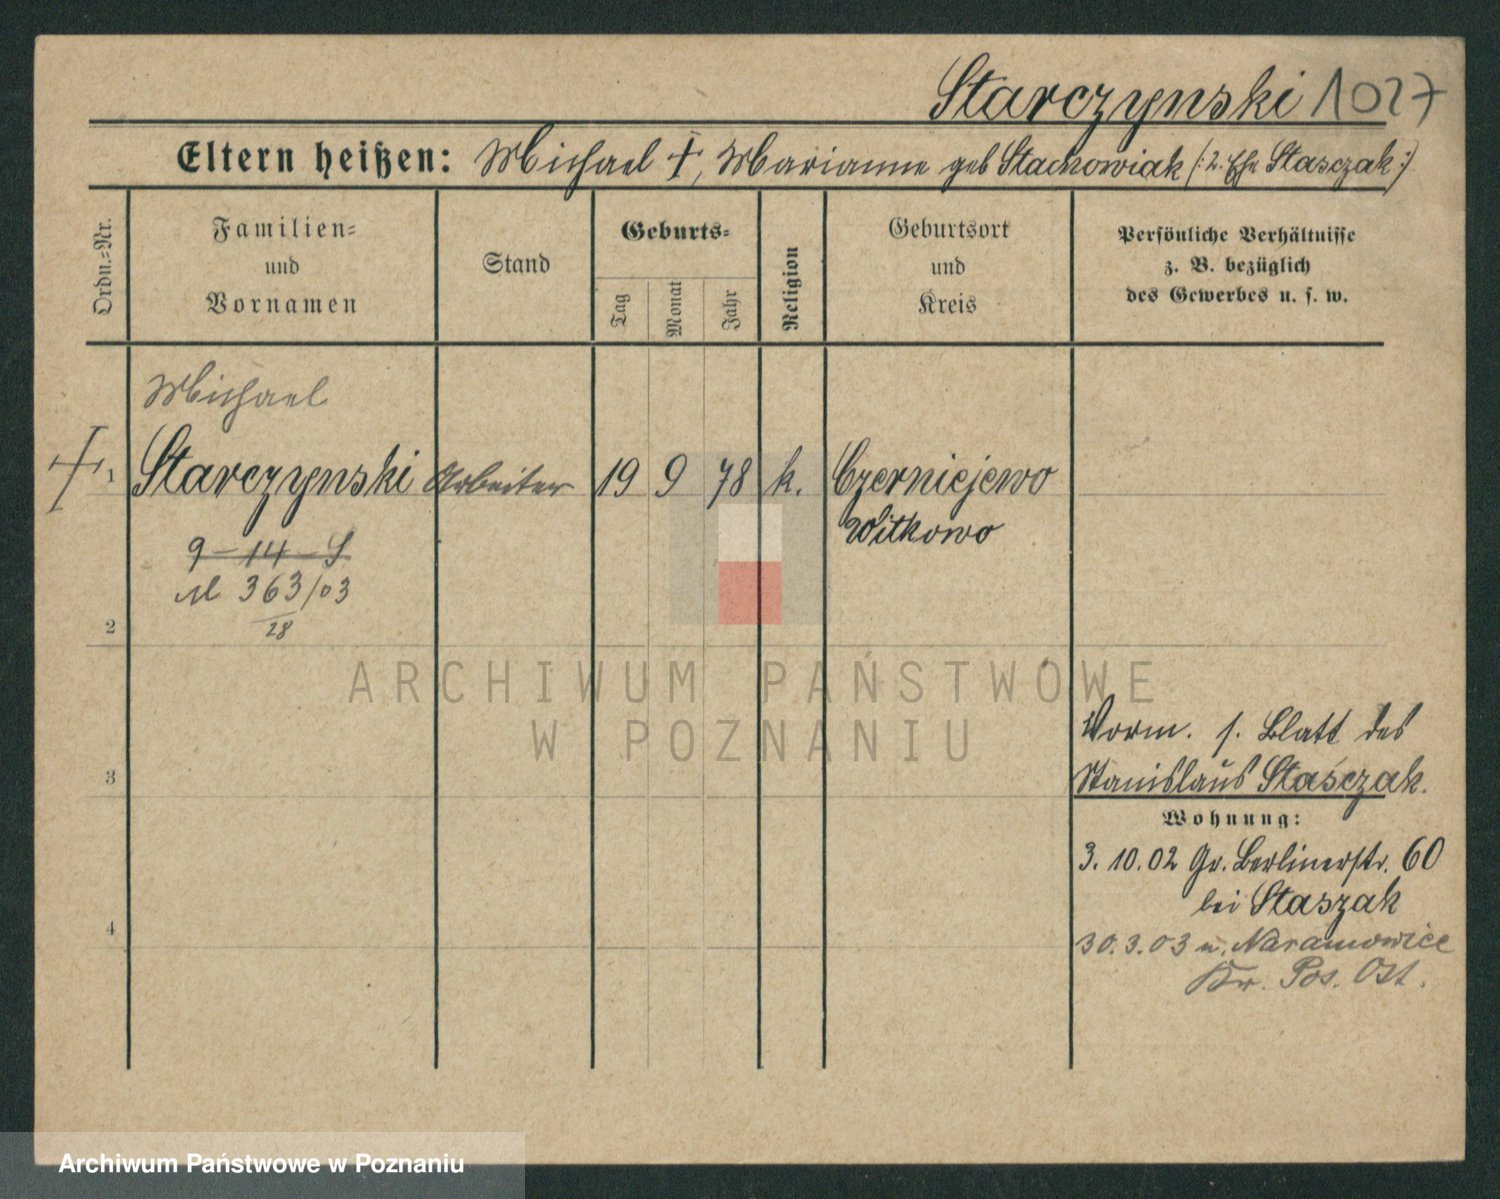 Starczynski 1027
Eltern heißen: Michael +, Marianne geb Stachowiak (: 2. Ehe Stasczak :)
Ordn.=Nr.
Familien=
und
Vornamen
Stand
Geburts=
Tag
Monat
Jahr
Religion
Geburtsort
und
Kreis
Persönliche Verhältnisse
z. B. bezüglich
des Gewerbes u. s. w.
Michael
+ 1 Starczynski Arbeiter 19 9 78 k. Czerniejewo
Witkowo
9 - 14 - S
M 363/03
28
2
ARCHIWUM PAŃSTWOWE
W POZNANIU
Vorm. s. Blatt des
3 Stanislaus Stasczak.
Wohnung:
3. 10. 02 Gr. Berlinerstr. 60
bei Staszak
4
30. 3. 03 n. Naramowice
Kr. Pos. Ost.
Archiwum Państwowe w Poznaniu